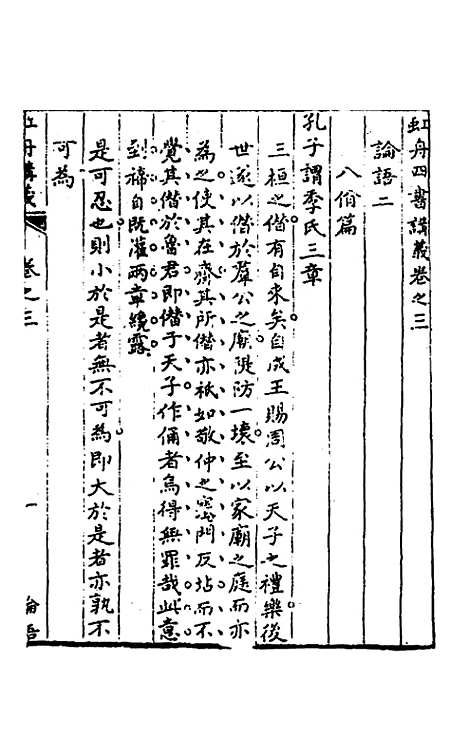 虹舟四書講義卷之三
論語二
八佾篇
孔子謂季氏三章
三桓之僭有自來矣自成王賜周公以天子之禮樂後
世遂以僭於羣公之廟隄防一壞至以家廟之庭而亦
為之使其在齊其所僭亦祇如敬仲之塞門反坫而不
覺其僭於魯君即僭于天子作俑者烏得無罪哉此意
到禘自既灌兩章纔露
是可忍也則小於是者無不可為即大於是者亦孰不
可為
虹舟講義
卷之三
一
論語